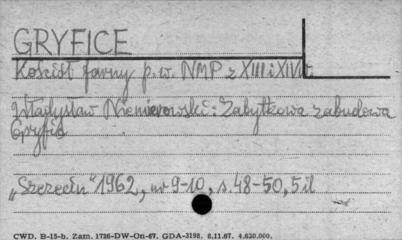 GRYFICE
Kościół farny p.w. NMP z XIII i XIV w.
Władysław Niemierowski: Zabytkowa zabudowa
Gryfic
"Szczecin" 1962, nr 9-10, s. 48-50, 5 il
CWD. B-15-b. Zam. 1726-DW-On-67. GDA-3198. 8.11.67. 4.630.000.